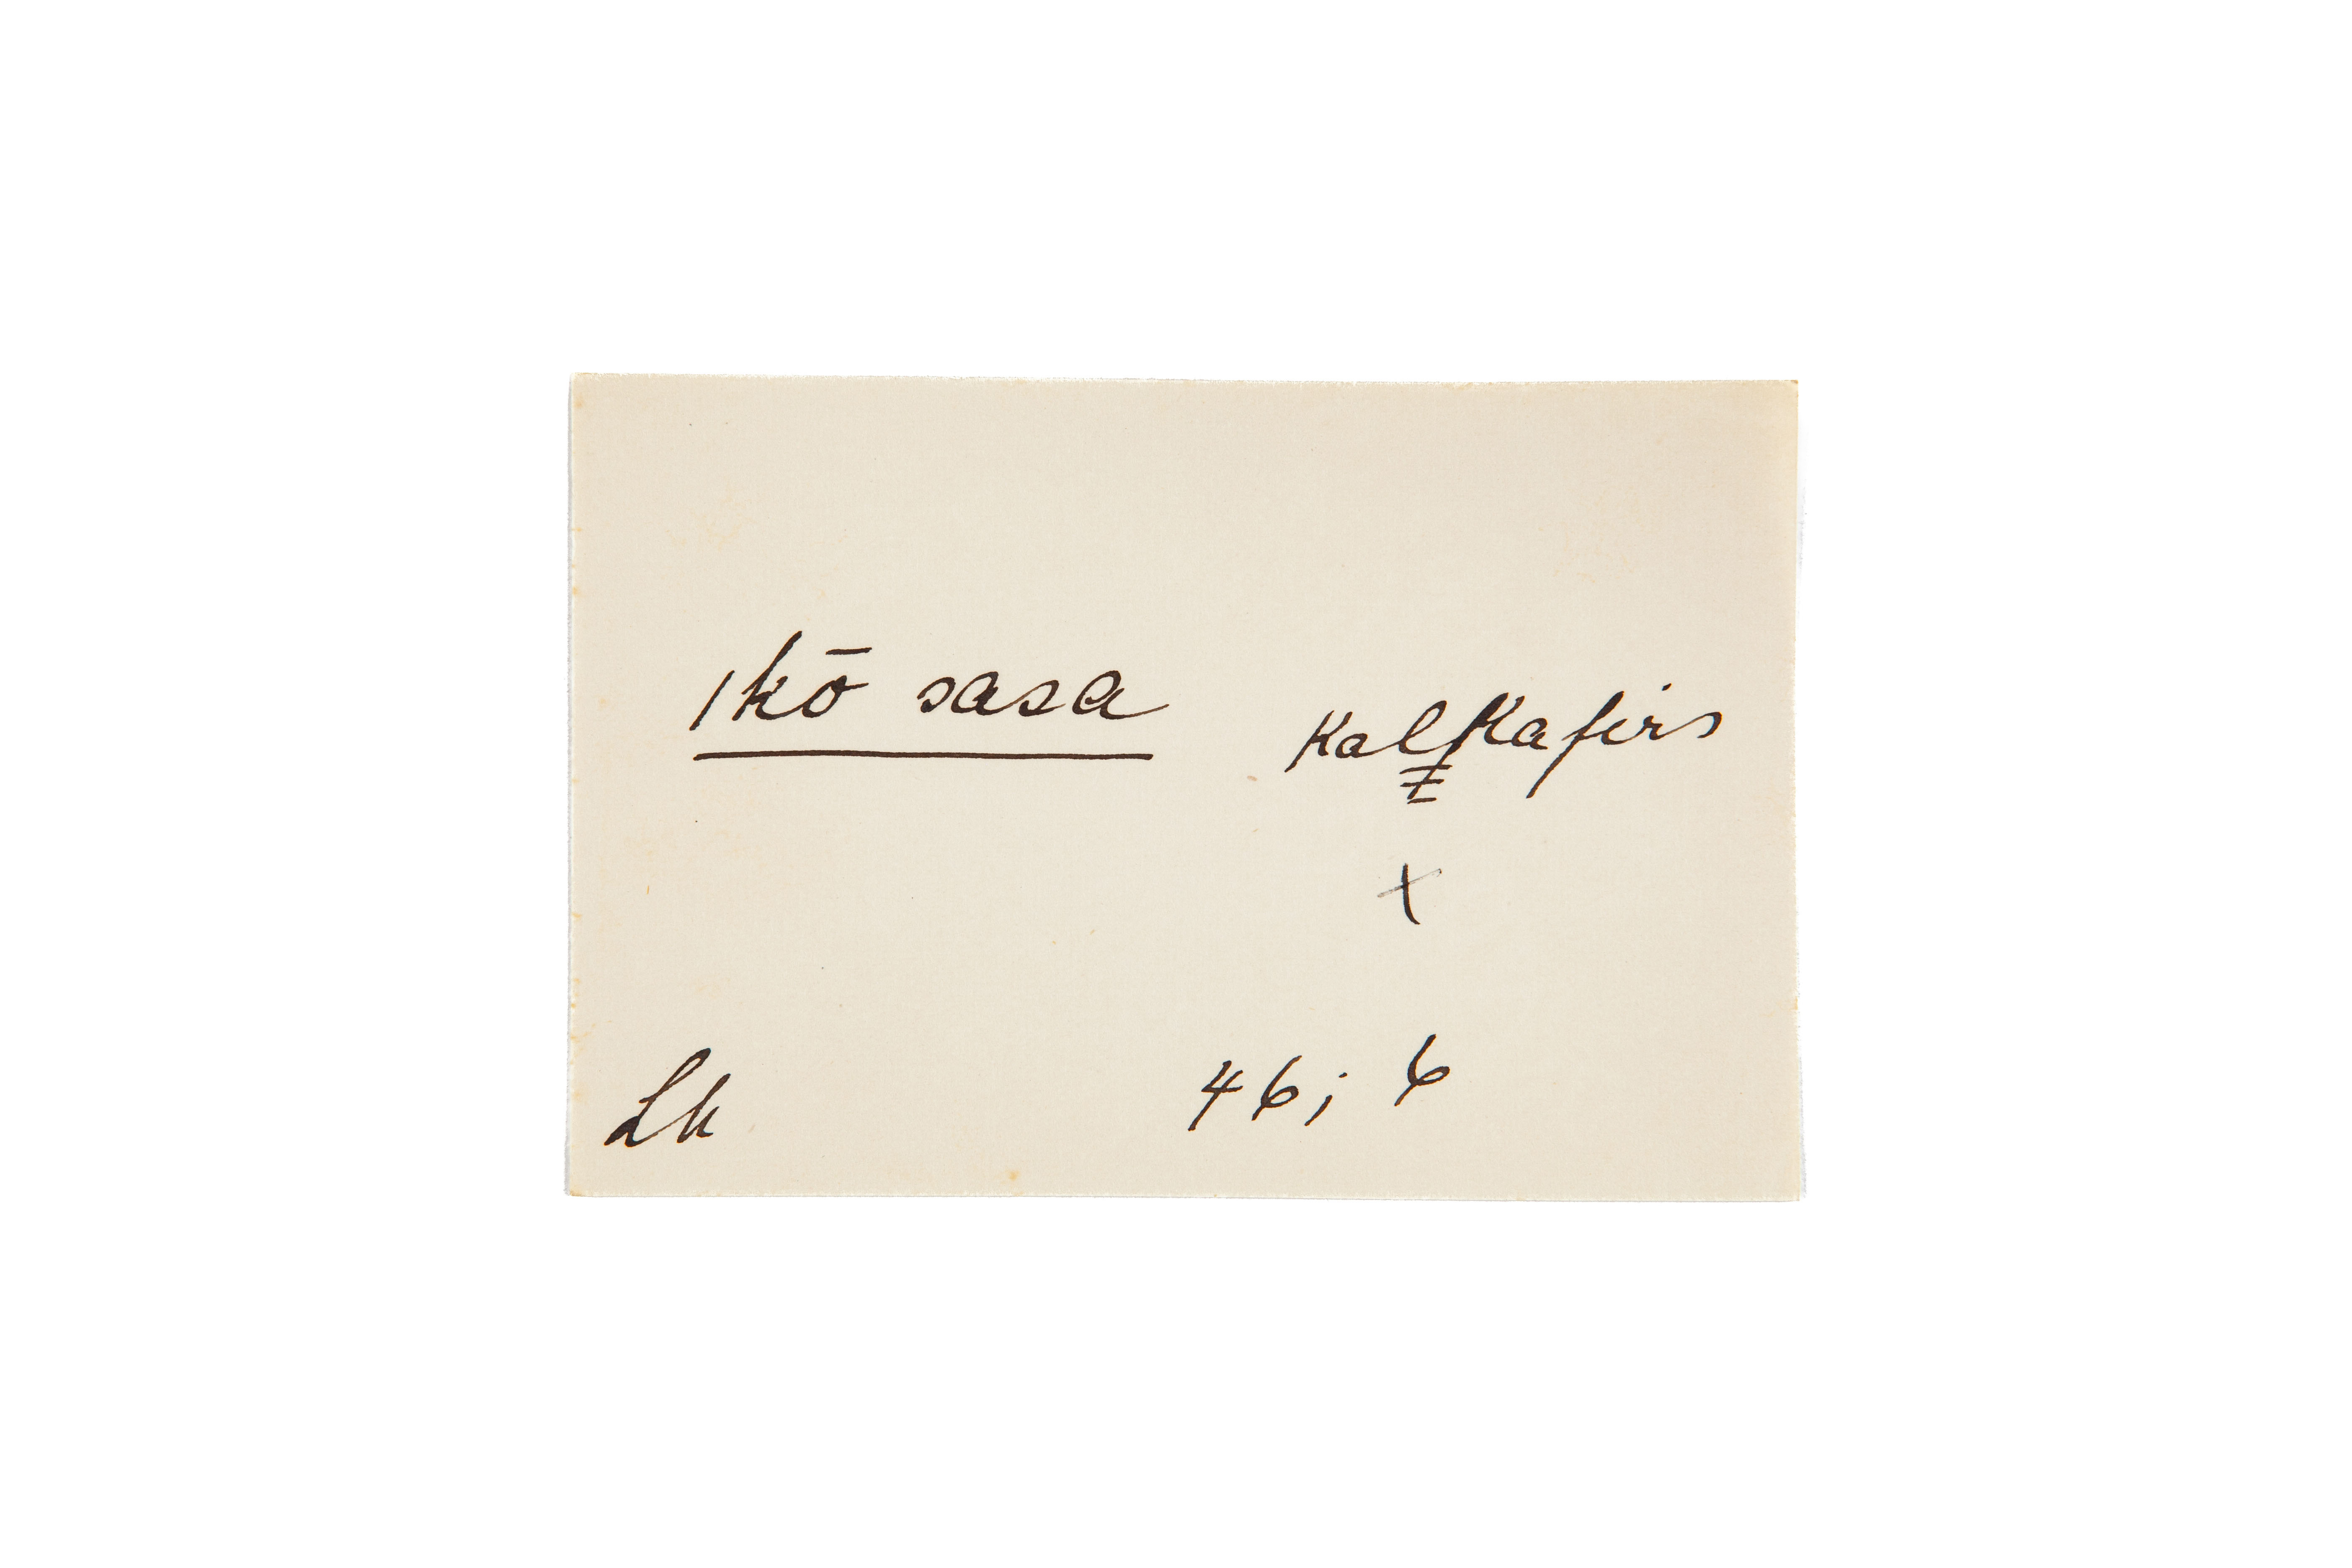 ikō sasa Kal Kafirs
x
Lh 46; 6